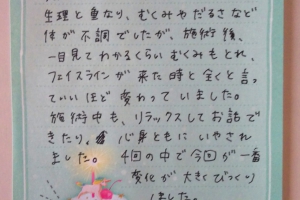 生理と重なり、むくみやだるさなど
体が不調でしたが、施術後、
一目見てわかるくらいむくみもとれ、
フェイスラインが来た時と全くと言っ
ていいほど変わっていました。
施術中も、リラックスしてお話で
きたり、心身ともにいやされ
ました。 4回の中で今回が一番
変化が大きくびっくり
しました。